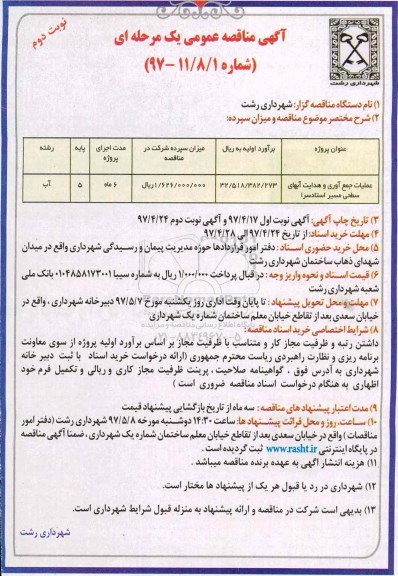 نوبت دوم
آگهی مناقصه عمومی یک مرحله ای
(شماره ۱۱/۸/۱ -۹۷)
شهرداری رشت
۱) نام دستگاه مناقصه گزار: شهرداری رشت
۲) شرح مختصر موضوع مناقصه و میزان سپرده:
عنوان پروژه
برآورد اولیه به ریال
میزان سپرده شرکت در مناقصه
مدت اجرای پروژه
پایه
رشته
عملیات جمع آوری و هدایت آبهای سطحی مسیر استادسرا
۳۲/۵۱۸/۳۸۲/۲۷۳
۱/۶۲۶/۰۰۰/۰۰۰ریال
۶ ماه
۵
آب
۳) تاریخ چاپ آگهی: آگهی نوبت اول ۹۷/۴/۱۷ و آگهی نوبت دوم ۹۷/۴/۲۴
۴) مهلت خرید اسناد: از تاریخ ۹۷/۴/۲۴ الی ۹۷/۴/۲۸
۵) محل خرید حضوری اسناد: دفتر امور قراردادها حوزه مدیریت پیمان و رسیدگی شهرداری واقع در میدان
شهدای ذهاب ساختمان شهرداری رشت
۶) قیمت اسناد و نحوه واریز وجه: در قبال پرداخت ۱/۰۰۰/۰۰۰ ریال به شماره سیبا ۰۱۰۴۸۵۸۱۷۳۰۰۱ بانک ملی
شعبه شهرداری رشت
۷) مهلت و محل تحویل پیشنهاد: تا پایان وقت اداری روز یکشنبه مورخ ۹۷/۵/۷ دبیرخانه شهرداری، واقع در
خیابان سعدی بعد از تقاطع خیابان معلم ساختمان شماره یک شهرداری
۸) شرایط اختصاصی خرید اسناد مناقصه:
داشتن رتبه و ظرفیت مجاز کار و متناسب با ظرفیت مجاز بر اساس برآورد اولیه پروژه از سوی معاونت
برنامه ریزی و نظارت راهبردی ریاست محترم جمهوری (ارائه درخواست خرید اسناد با ثبت دبیر خانه
شهرداری به آدرس فوق، گواهینامه صلاحیت، پرینت ظرفیت مجاز کاری و ریالی و تکمیل فرم خود
اظهاری به هنگام درخواست اسناد مناقصه ضروری است)
۹) مدت اعتبار پیشنهاد های مناقصه: سه ماه از تاریخ بازگشایی پیشنهاد قیمت
۱۰) ساعت، روز و محل قرائت پیشنهاد ها: ساعت ۱۴:۳۰ دوشنبه مورخه ۹۷/۵/۸ شهرداری رشت (دفتر امور
مناقصات) واقع در خیابان سعدی بعد از تقاطع خیابان معلم ساختمان شماره یک شهرداری، ضمنا آگهی مناقصه
در پایگاه اینترنتی www.rasht.ir ثبت گردیده است.
۱۱) هزینه انتشار آگهی به عهده برنده مناقصه میباشد.
۱۲) شهرداری در رد یا قبول هر یک از پیشنهاد ها مختار است.
۱۳) بدیهی است شرکت در مناقصه و ارائه پیشنهاد به منزله قبول شرایط شهرداری است.
شهرداری رشت